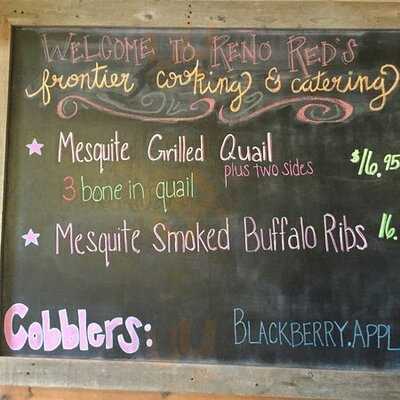 WELCOME TO RENO RED'S
frontier cooking & catering
Mesquite Grilled Quail $16.95
plus two sides
3 bone in quail
Mesquite Smoked Buffalo Ribs 16.
Cobblers: BLACKBERRY.APPL